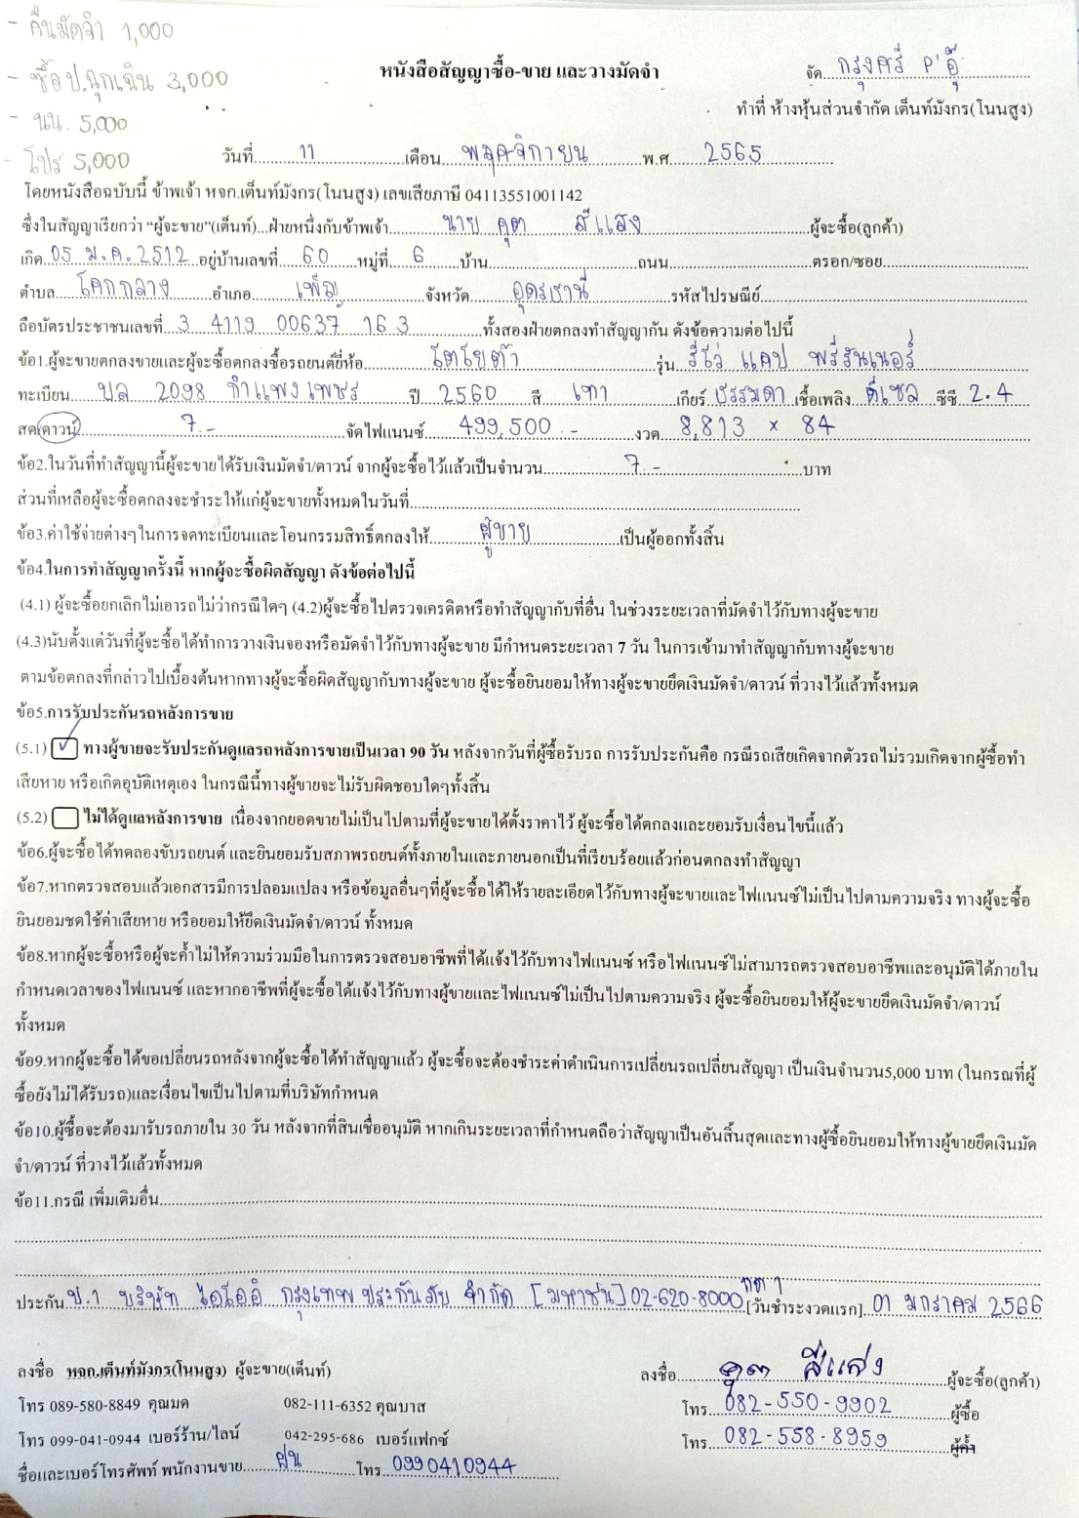 - คืนมัดจำ 1,000
- ซื้อป.ฉุกเฉิน 3,000
- นน. 5,000
- โปร 5,000
หนังสือสัญญาซื้อ-ขาย และวางมัดจำ
จัด กรุงศรี P'อุ๊
ทำที่ ห้างหุ้นส่วนจำกัด เต็นท์มังกร(โนนสูง)
วันที่ 11 เดือน พฤศจิกายน พ.ศ. 2565
โดยหนังสือฉบับนี้ ข้าพเจ้า หจก.เต็นท์มังกร(โนนสูง) เลขเสียภาษี 04113551001142
ซึ่งในสัญญาเรียกว่า “ผู้จะขาย”(เต็นท์)...ฝ่ายหนึ่งกับข้าพเจ้า นาย คุต สีแสง ผู้จะซื้อ(ลูกค้า)
เกิด 05 ม.ค. 2512 อยู่บ้านเลขที่ 60 หมู่ที่ 6 บ้าน ถนน ตรอก/ซอย
ตำบล โคกกลาง อำเภอ เพ็ญ จังหวัด อุดรธานี รหัสไปรษณีย์
ถือบัตรประชาชนเลขที่ 3 4119 00637 16 3 ทั้งสองฝ่ายตกลงทำสัญญากัน ดังข้อความต่อไปนี้
ข้อ1.ผู้จะขายตกลงขายและผู้จะซื้อตกลงซื้อรถยนต์ยี่ห้อ โตโยต้า รุ่น รีโว่ แคป พรีรันเนอร์
ทะเบียน บล 2098 กำแพงเพชร ปี 2560 สี เทา เกียร์ ธรรมดา เชื้อเพลิง ดีเซล ซีซี 2.4
สด/ดาวน์ 7.- จัดไฟแนนซ์ 499,500.- งวด 8,813 × 84
ข้อ2.ในวันที่ทำสัญญานี้ผู้จะขายได้รับเงินมัดจำ/ดาวน์ จากผู้จะซื้อไว้แล้วเป็นจำนวน 7.- บาท
ส่วนที่เหลือผู้จะซื้อตกลงจะชำระให้แก่ผู้จะขายทั้งหมดในวันที่
ข้อ3.ค่าใช้จ่ายต่างๆในการจดทะเบียนและโอนกรรมสิทธิ์ตกลงให้ ผู้ขาย เป็นผู้ออกทั้งสิ้น
ข้อ4.ในการทำสัญญาครั้งนี้ หากผู้จะซื้อผิดสัญญา ดังข้อต่อไปนี้
(4.1) ผู้จะซื้อยกเลิกไม่เอารถไม่ว่ากรณีใดๆ (4.2)ผู้จะซื้อไปตรวจเครดิตหรือทำสัญญากับที่อื่น ในช่วงระยะเวลาที่มัดจำไว้กับทางผู้จะขาย
(4.3)นับตั้งแต่วันที่ผู้จะซื้อได้ทำการวางเงินจองหรือมัดจำไว้กับทางผู้จะขาย มีกำหนดระยะเวลา 7 วัน ในการเข้ามาทำสัญญากับทางผู้จะขาย
ตามข้อตกลงที่กล่าวไปเบื้องต้นหากทางผู้จะซื้อผิดสัญญากับทางผู้จะขาย ผู้จะซื้อยินยอมให้ทางผู้จะขายยึดเงินมัดจำ/ดาวน์ ที่วางไว้แล้วทั้งหมด
ข้อ5.การรับประกันรถหลังการขาย
(5.1) ✓ ทางผู้ขายจะรับประกันดูแลรถหลังการขายเป็นเวลา 90 วัน หลังจากวันที่ผู้ซื้อรับรถ การรับประกันคือ กรณีรถเสียเกิดจากตัวรถไม่รวมเกิดจากผู้ซื้อทำ
เสียหาย หรือเกิดอุบัติเหตุเอง ในกรณีนี้ทางผู้ขายจะไม่รับผิดชอบใดๆทั้งสิ้น
(5.2) ไม่ได้ดูแลหลังการขาย เนื่องจากยอดขายไม่เป็นไปตามที่ผู้จะขายได้ตั้งราคาไว้ ผู้จะซื้อได้ตกลงและยอมรับเงื่อนไขนี้แล้ว
ข้อ6.ผู้จะซื้อได้ทดลองขับรถยนต์ และยินยอมรับสภาพรถยนต์ทั้งภายในและภายนอกเป็นที่เรียบร้อยแล้วก่อนตกลงทำสัญญา
ข้อ7.หากตรวจสอบแล้วเอกสารมีการปลอมแปลง หรือข้อมูลอื่นๆที่ผู้จะซื้อได้ให้รายละเอียดไว้กับทางผู้จะขายและไฟแนนซ์ไม่เป็นไปตามความจริง ทางผู้จะซื้อ
ยินยอมชดใช้ค่าเสียหาย หรือยอมให้ยึดเงินมัดจำ/ดาวน์ ทั้งหมด
ข้อ8.หากผู้จะซื้อหรือผู้จะค้ำไม่ให้ความร่วมมือในการตรวจสอบอาชีพที่ได้แจ้งไว้กับทางไฟแนนซ์ หรือไฟแนนซ์ไม่สามารถตรวจสอบอาชีพและอนุมัติได้ภายใน
กำหนดเวลาของไฟแนนซ์ และหากอาชีพที่ผู้จะซื้อได้แจ้งไว้กับทางผู้ขายและไฟแนนซ์ไม่เป็นไปตามความจริง ผู้จะซื้อยินยอมให้ผู้จะขายยึดเงินมัดจำ/ดาวน์
ทั้งหมด
ข้อ9.หากผู้จะซื้อได้ขอเปลี่ยนรถหลังจากผู้จะซื้อได้ทำสัญญาแล้ว ผู้จะซื้อจะต้องชำระค่าดำเนินการเปลี่ยนรถเปลี่ยนสัญญา เป็นเงินจำนวน5,000 บาท (ในกรณที่ผู้
ซื้อยังไม่ได้รับรถ)และเงื่อนไขเป็นไปตามที่บริษัทกำหนด
ข้อ10.ผู้ซื้อจะต้องมารับรถภายใน 30 วัน หลังจากที่สินเชื่ออนุมัติ หากเกินระยะเวลาที่กำหนดถือว่าสัญญาเป็นอันสิ้นสุดและทางผู้ซื้อยินยอมให้ทางผู้ขายยึดเงินมัด
จำ/ดาวน์ ที่วางไว้แล้วทั้งหมด
ข้อ11.กรณี เพิ่มเติมอื่น
ประกัน ป.1 บริษัท ไอโออิ กรุงเทพ ประกันภัย จำกัด [มหาชน] 02-620-8000 กด 1 [วันชำระงวดแรก] 01 มกราคม 2566
ลงชื่อ หจก.เต็นท์มังกร(โนนสูง) ผู้จะขาย(เต็นท์) ลงชื่อ คุต สีแสง ผู้จะซื้อ(ลูกค้า)
โทร 089-580-8849 คุณมด 082-111-6352 คุณบาส โทร 082-550-9902 ผู้ซื้อ
โทร 099-041-0944 เบอร์ร้าน/ไลน์ 042-295-686 เบอร์แฟกซ์ โทร 082-558-8959 ผู้ค้ำ
ชื่อและเบอร์โทรศัพท์ พนักงานขาย ฝน โทร 0990410944